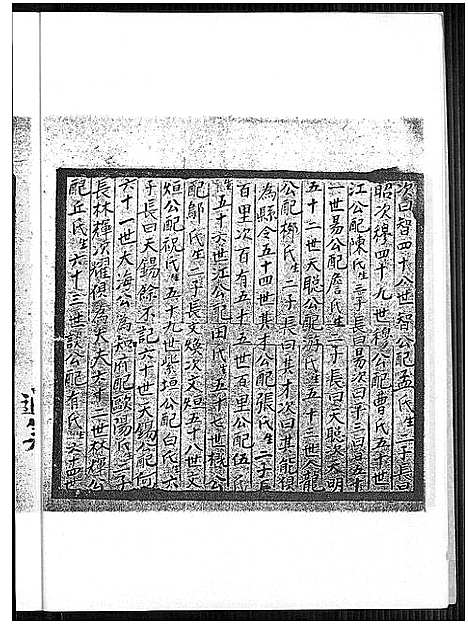 次曰智四十八世智公配孟氏生二子長曰
昭次穆四十九世穆公配曹氏五十世
江公配陳氏生三子長曰易次曰予三曰五十
一世易公配詹氏生二子長曰天聰次天明
五十二世天聰公配游氏生五十三世人龍
公配柳氏生二子長曰其才次曰其能俱
為縣令五十四世其才公配張氏生二子長
百里次百有五十五世百里公配伍氏
生五十六世江公配田氏生五十七世
配鄔氏生二子長文煥次文烜五十八世文
烜公配祝氏生五十九世紫垣公配白氏生六
子長曰天錫餘不記六十世天錫公配何
六十一世大海公為知府配歐陽氏生二子
長林樺次耀俱 六十二世林樺公
配丘氏生六十三世談公配有氏